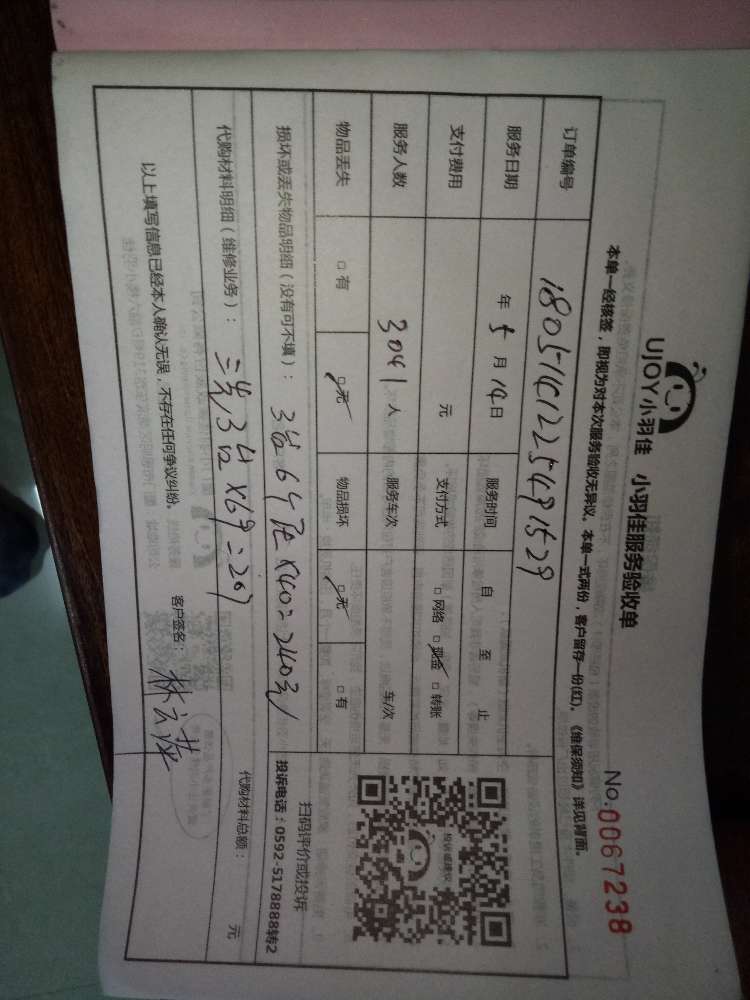 UJOY小羽佳 小羽佳服务验收单
No.0067238
本单一经核签，即视为对本次服务验收无异议。本单一式两份，客户留存一份(红)。《维保须知》详见背面。
订单编号 18051412254891529
服务日期 年 5 月 14 日 服务时间 自 至 止
支付费用 元 支付方式 □网络 □现金 □转账
服务人数 3041 人 服务车次 车/次
物品丢失 □有 □无 物品损坏 □无 □有
投诉或建议
扫码评价或投诉
投诉电话：0592-5178888转2
损坏或丢失物品明细（没有可不填）： 3台 6 ×40=240元
代购材料明细（维修业务）： 3台×69=207
代购材料总额： 元
以上填写信息已经本人确认无误，不存在任何争议纠纷。 客户签名：